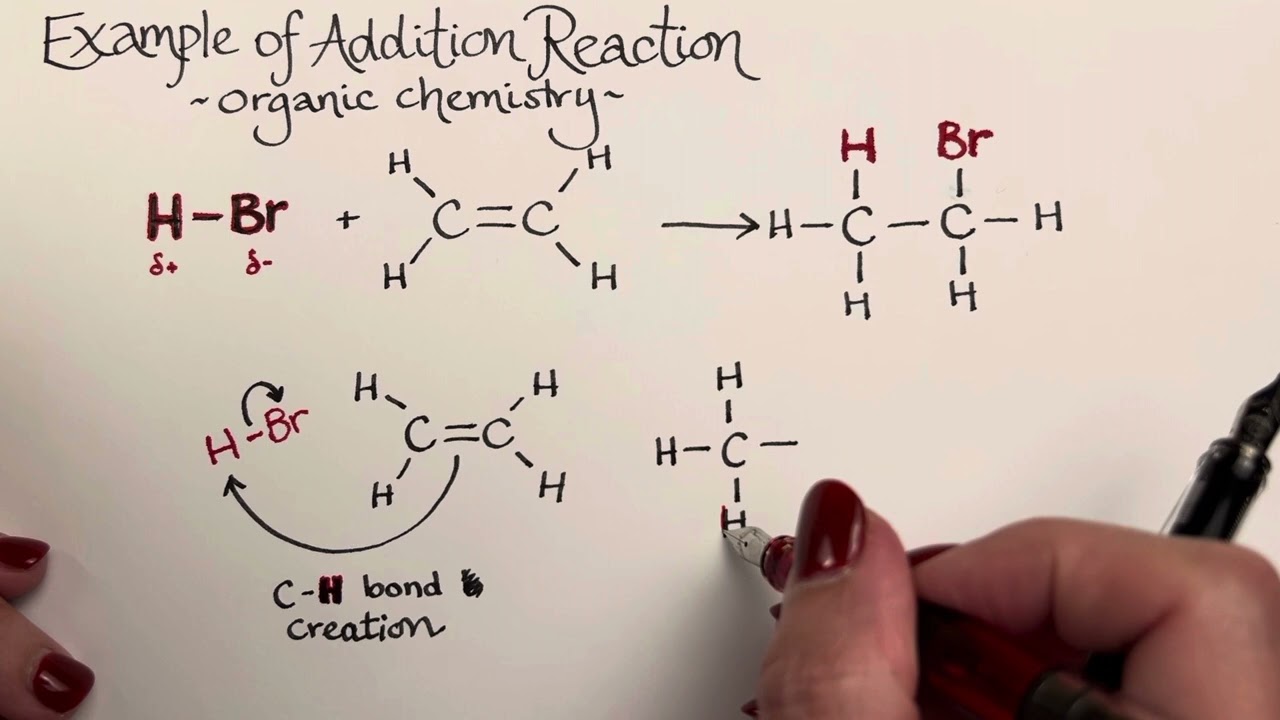 Example of Addition Reaction
~organic chemistry~
H Br
H-Br + H H C=C H H → H-C-C-H
δ+ δ-
H H
H H H
H-Br C=C H-C-
H H H
C-H bond
creation